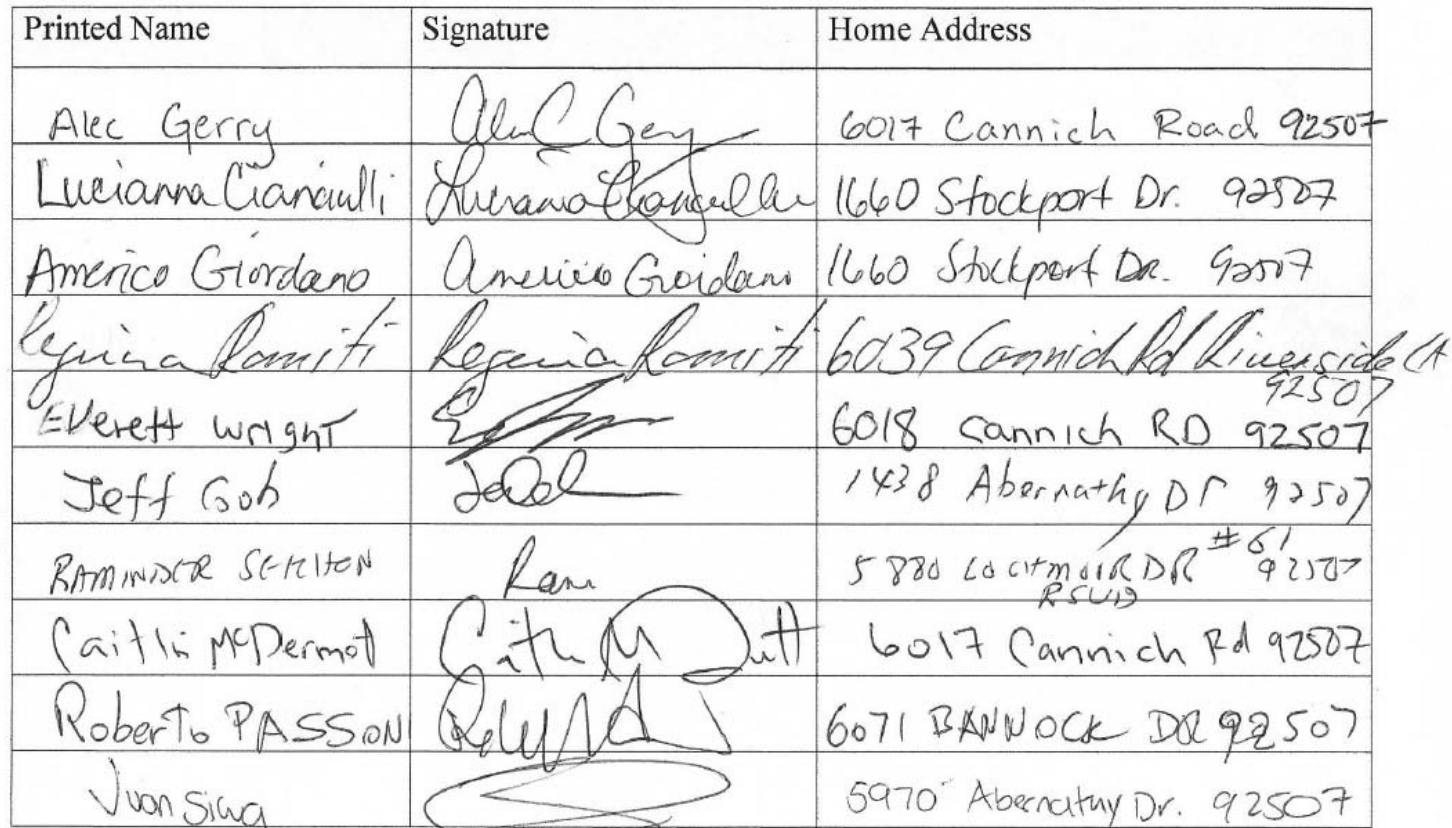 Printed Name Signature Home Address
Alec Gerry Alec C Gerry 6017 Cannich Road 92507
Lucianna Cianciulli Luciana Cianciulli 1660 Stockport Dr. 92507
Americo Giordano Americo Giordano 1660 Stockport DR. 92507
Regina Ramiti Regina Ramiti 6039 Cannich Rd Riverside CA
92507
Everett Wright 6018 Cannich RD 92507
Jeff Goh 1438 Abernathy Dr 92507
RAMINDER SEKHON Ram 5880 LOCHMOIR DR #61 92507
RSVD
Caitlin McDermott 6017 Cannich Rd 92507
Roberto PASSON 6071 BANNOCK DR 92507
Juan Silva 5970 Abernathy Dr. 92507